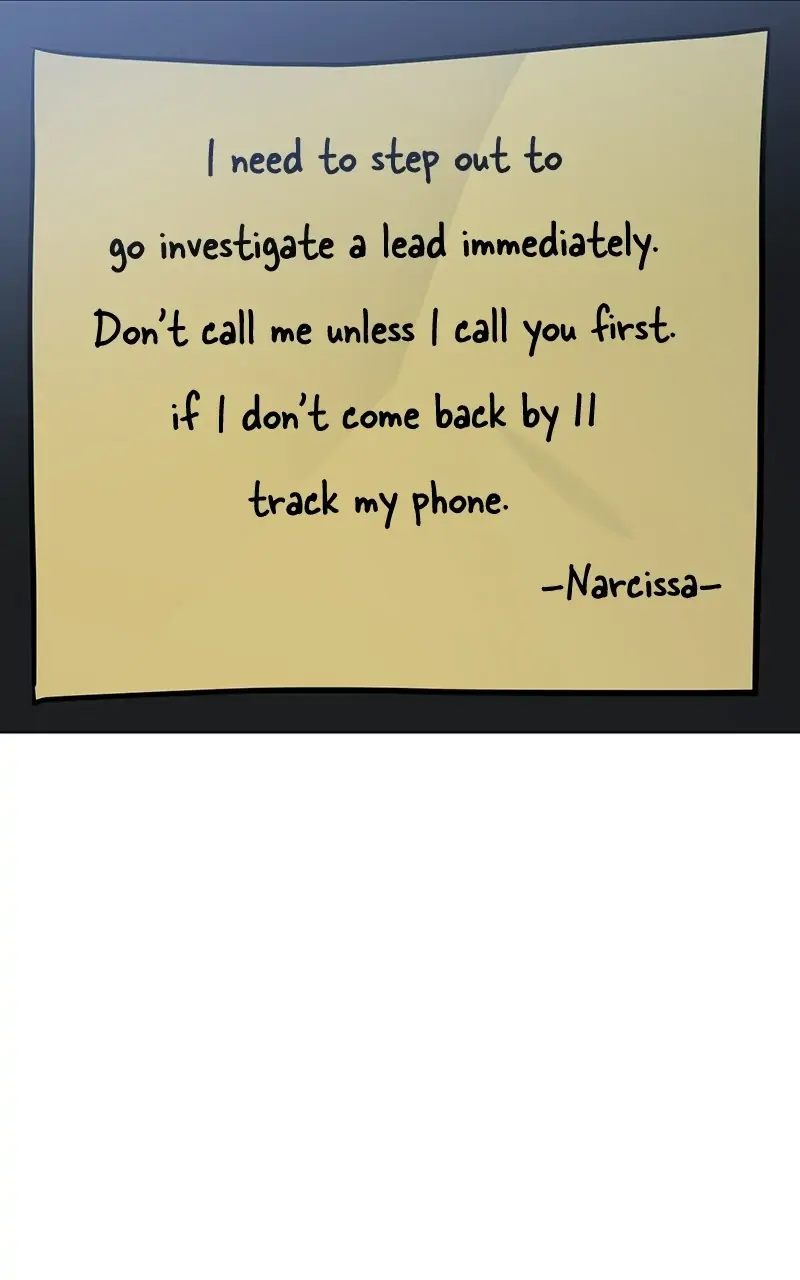 I need to step out to
go investigate a lead immediately.
Don't call me unless I call you first.
if I don't come back by 11
track my phone.
-Narcissa-